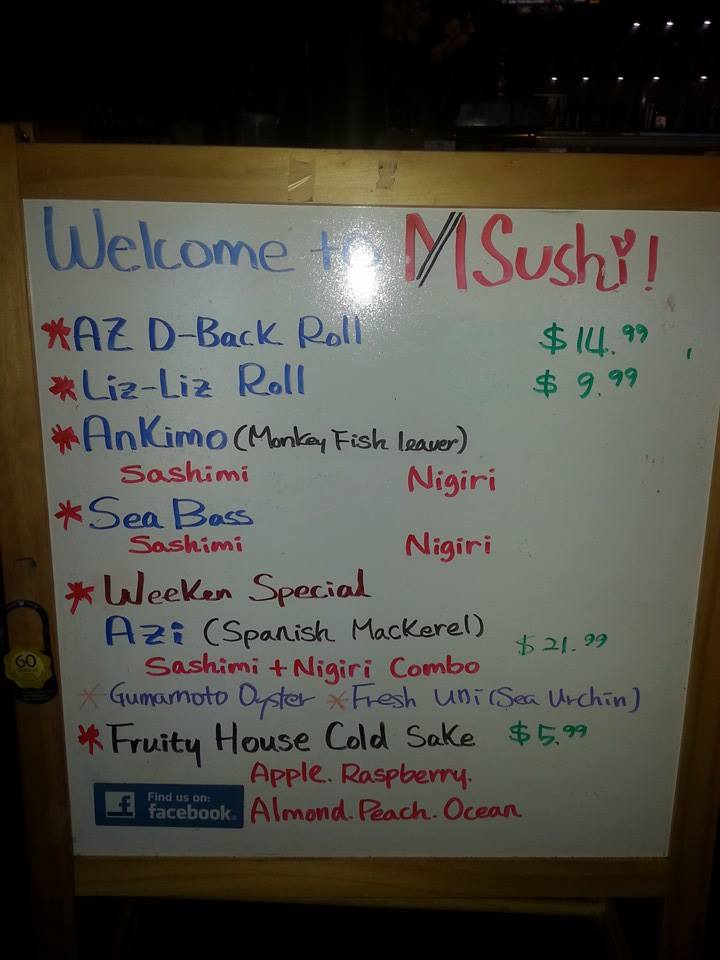 Welcome to M Sushi!
*AZ D-Back Roll $14.99
*Liz-Liz Roll $9.99
*Ankimo (Monkey Fish leaver)
Sashimi Nigiri
*Sea Bass
Sashimi Nigiri
*Weeken Special
Azi (Spanish Mackerel) $21.99
Sashimi + Nigiri Combo
*Gumamoto Oyster *Fresh Uni (Sea Urchin)
*Fruity House Cold Sake $5.99
Apple. Raspberry.
Almond. Peach. Ocean
Find us on:
facebook.
60